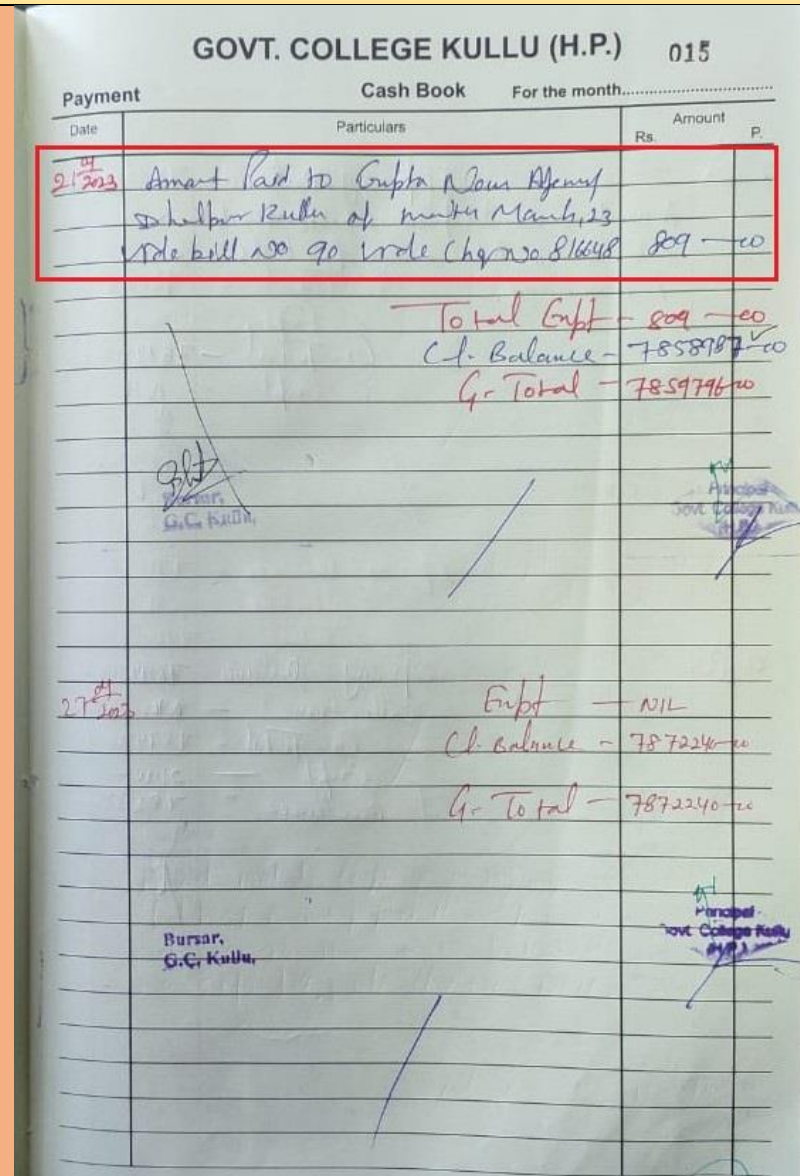 GOVT. COLLEGE KULLU (H.P.) 015
Payment Cash Book For the month
Date Particulars Amount
Rs. P.
21/04/2023 Amount Paid to Gupta News Agency
Dhalpur Kullu of month March, 23
vide bill No 90 vide Chq No. 816648 809-00
Total Expt - 809-00
Cl. Balance - 7858987-00
G. Total - 7859796-00
Bursar,
G.C. Kullu.
Principal
Govt. College Kullu
27/04/2023 Expt - NIL
Cl. Balance - 7872240-00
G. Total - 7872240-00
Bursar,
G.C. Kullu.
Principal
Govt. College Kullu
(H.P.)